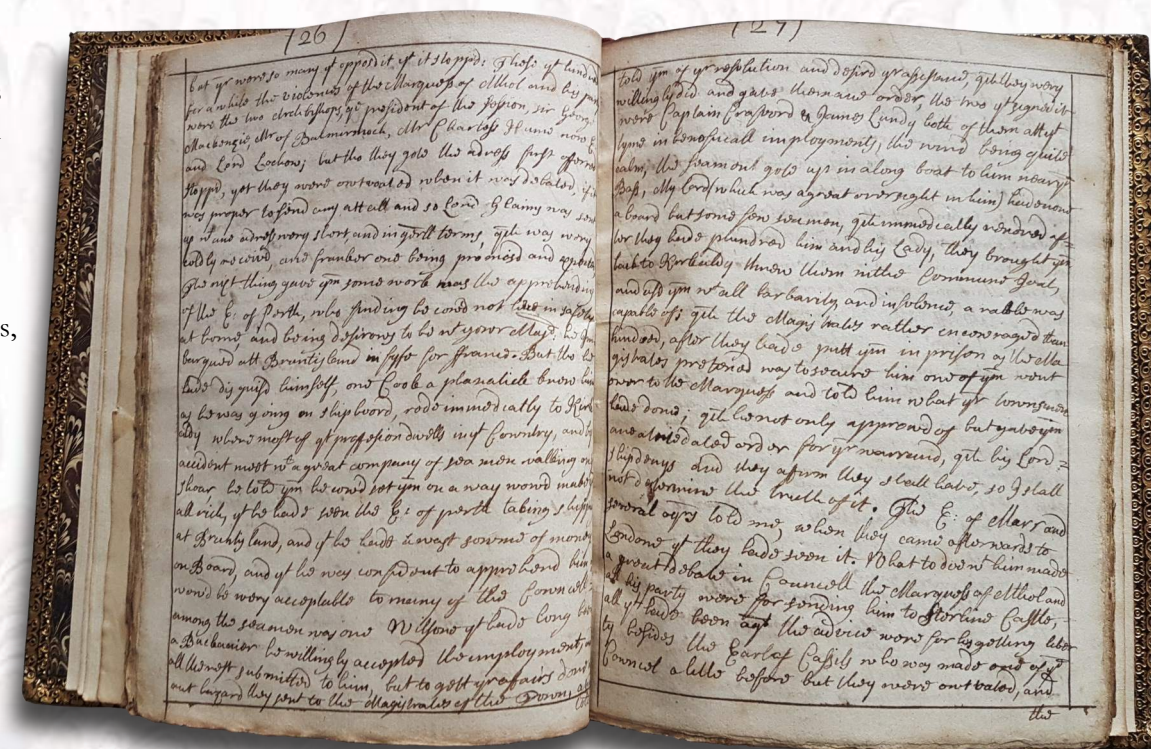 s,
(26)
but yr were so many yt opposd it, yt it stoppd: These yt hindred
for a while the violence of the Marquess of Athol and his party
were the two Arch bishops, ye president of the session, sir George
Mackenzie, Mr of Balmirinoch, Mr Charles Hume now E:
and Lord Lochore; but tho they gote the adress first offered
stoppd, yet they were outvoated when it was debated, if it
was proper to send any att all and so Lord Glamis was sent
up wt ane adress wery short, and in generll terms, qch was wery
coldly receivd, ane franker one being promosd and expected
The nixt thing gave ym some work was the apprehending
of the E: of Perth, who finding he coud not live in safety
at home and being desirous to be wt your Majy: he
barqued att Bruntisland in fyfe for ffrance. But tho he
hade disguisd himself, one Cook a phanatick knew him
as he was going on shipbord, rode immediatly to Kirk
cldy where most of yt profession dwells in yt Countrey, and by
accident meet wt a great company of sea men walking on
shoar he told ym he coud set ym on a way woud make ym
all rich, yt he hade seen the E: of perth taking shipping
at Bruntyland, and yt he hade a wast sowme of money
on Board, and yt he was confident to apprehend him
woud be wery acceptable to many of the Councell
among the seamen was one Willsone yt hade long been
a Buchanier he willingly accepted the imployment,
all the rest submitted to him, but to gett yr affairs done
out hazard they sent to the Magistrates of the Town, and
(27)
told ym of yr resolution and desird yr assistance, qch they wery
willingly did and gave them ane order, the two yt signed it
were Captain Craford & James Lundy both of them att yt
tyme in beneficall imployments; the wind being quite
calm, the seamen gote up in a long boat to him near ye
Bass, My Lord (which was a great oversight in him) hade none
aboard but some few seamen, qch immedially rendred af=
ter they hade plundred him and his Lady, they brought ym
back to Kerkaldy threw them in the Commune Goal,
and usd ym wt all barbarity and insolence, a rable was
capable of; qch the Magistrates rather incouraged than
hindred, after they hade putt ym in prison as the Ma
gistrates pretended was to secure him one of ym went
over to the Marquess and told him what yr townsmen
hade done; qch he not only approved of but gave ym
ane antidated order for yr warrand, qch his Lord=
ship denys and they affirm they still have, so I shall
not determine the truth of it. The E: of Marr and
several oyrs told me, when they came afterwards to
Londone yt they hade seen it. What to doe wt him made
a great debate in Councell the Marquess of Athol and
his party were for sending him to Sterline Castle,
all yt hade been agt the advice were for his getting liber
ty besides the Earl of Cassils who was made one of ye
Councel a little before but they were outvoted, and
the